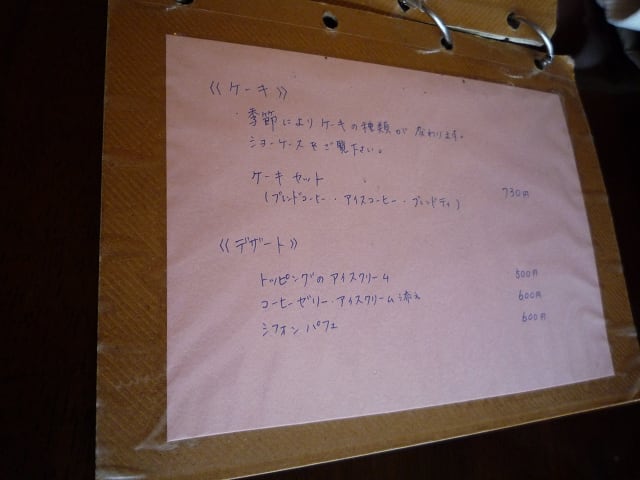 《ケーキ》
・季節によりケーキの種類が変わります。
ショーケースをご覧下さい。
ケーキセット
(ブレンドコーヒー・アイスコーヒー・ブレンドティ) 730円
《デザート》
トッピングのアイスクリーム 500円
コーヒーゼリー・アイスクリーム添え 600円
シフォンパフェ 600円